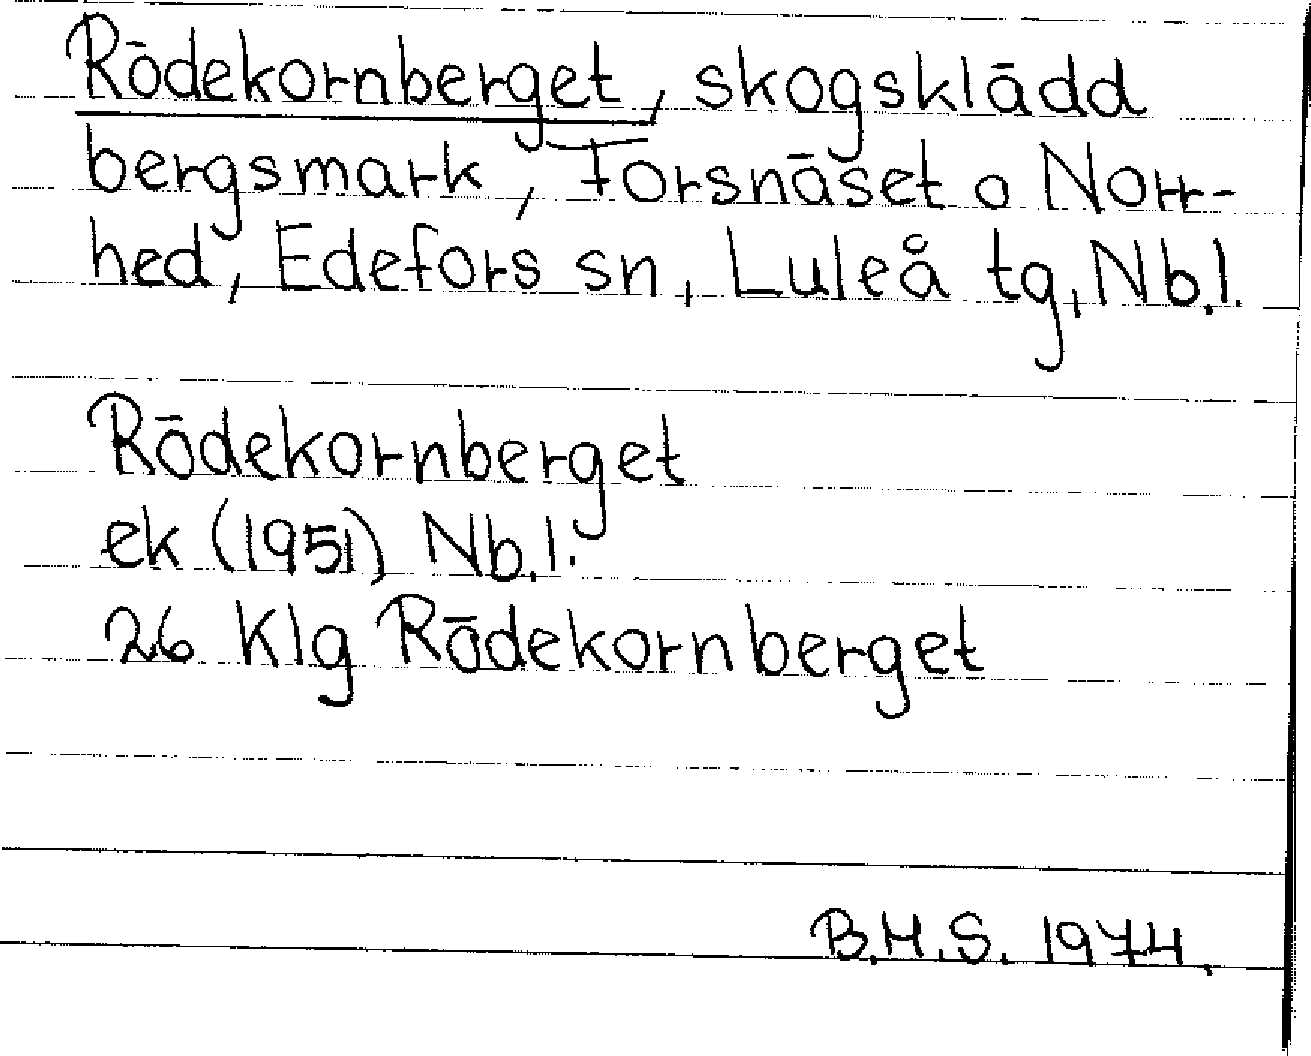 Rödekornberget, skogsklädd
bergsmark, Forsnäset o Norr-
hed, Edefors sn, Luleå tg, Nb.l.
Rödekornberget
ek (1951) Nb.l.
26 Klg Rödekornberget
B.M.S. 1974.